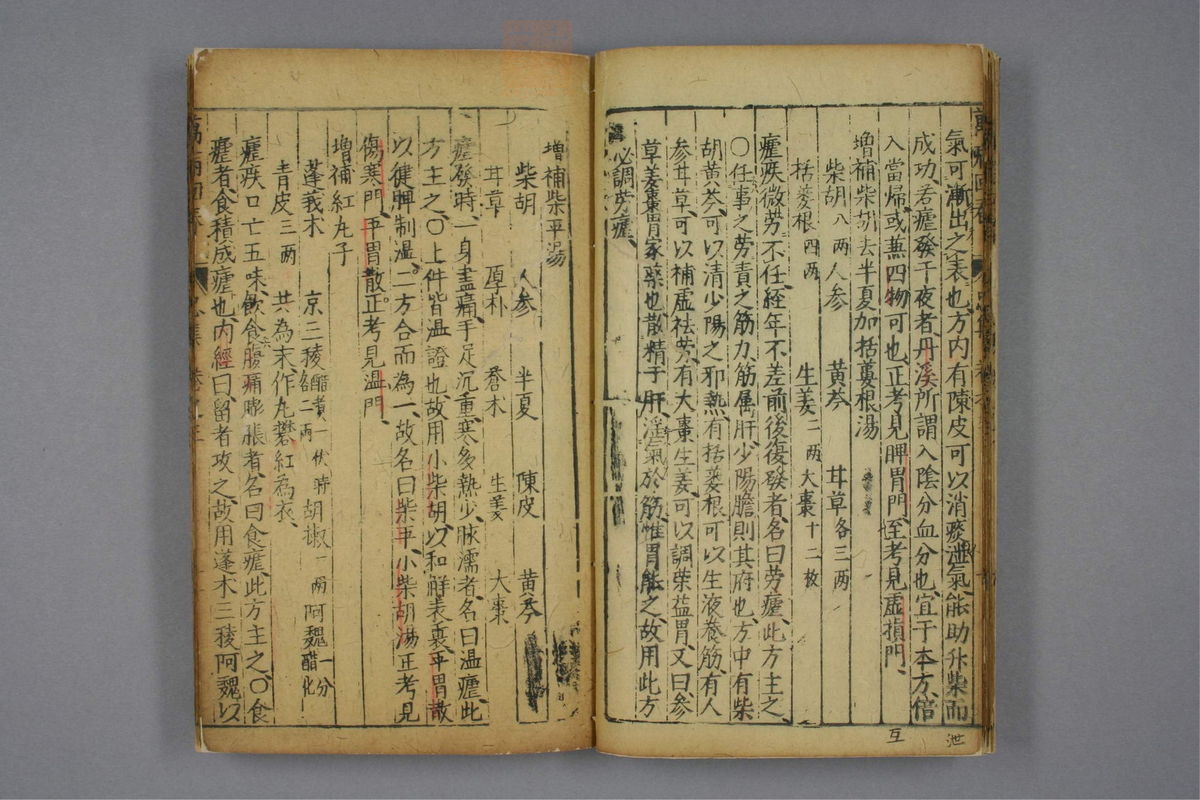 氣可漸出之表也方内有陳皮可以消痰溫氣能助升柴而
成功若瘧發于夜者丹溪所謂入陰分血分也宜于本方倍
入當歸或兼四物可也正考見脾胃門至考見虛損門
增補柴胡去半夏加括蔞根湯
柴胡八兩 人参 黄芩 甘草各三兩
括蔞根四兩 生姜二兩 大棗十二枚
瘧疾微勞不任經年不差前後復發者名曰勞瘧此方主之
〇任事之勞責之筋力筋属肝少陽膽則其府也方中有柴
胡黄芩可以清少陽之邪熱有括蔞根可以生液養筋有人
参甘草可以補虛祛勞有大棗生姜可以調榮益胃又曰参
草姜棗胃家藥也散精于肝淫氣於筋惟胃能之故用此方
必調勞瘧
互
泄
增補柴平湯
柴胡 人参 半夏 陳皮 黄芩
甘草 厚朴 蒼朮 生姜 大棗
瘧發時一身盡痛手足沉重寒多熱少脉濡者名曰温瘧此
方主之〇上件皆温證也故用小柴胡以和解表裏平胃散
以健脾制温二方合而為一故名曰柴平小柴胡湯正考見
傷寒門平胃散正考見温門
增補紅丸子
蓬莪朮 京三稜醋煮一伏時各二兩 胡椒一兩 阿魏一分醋化
青皮三兩 共為末作丸礬紅為衣
瘧疾口亡五味飲食腹痛膨脹者名曰食瘧此方主之〇食
瘧者食積成瘧也内經曰留者攻之故用蓬朮三稜阿魏以